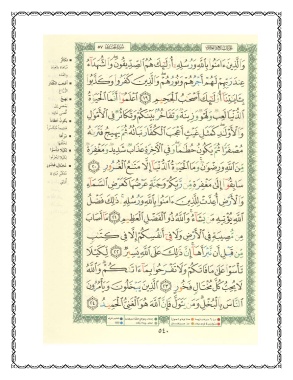 وَالَّذِينَ ءَامَنُوا بِاللَّهِ وَرُسُلِهِ أُولَٰئِكَ هُمُ الصِّدِّيقُونَ وَالشُّهَدَاءُ
عِندَ رَبِّهِمْ لَهُمْ أَجْرُهُمْ وَنُورُهُمْ وَالَّذِينَ كَفَرُوا وَكَذَّبُوا
بِـَٔايَٰتِنَا أُولَٰئِكَ أَصْحَٰبُ الْجَحِيمِ ١٩ اعْلَمُوا أَنَّمَا الْحَيَوٰةُ
الدُّنْيَا لَعِبٌ وَلَهْوٌ وَزِينَةٌ وَتَفَاخُرٌ بَيْنَكُمْ وَتَكَاثُرٌ فِي الْأَمْوَٰلِ
وَالْأَوْلَٰدِ كَمَثَلِ غَيْثٍ أَعْجَبَ الْكُفَّارَ نَبَاتُهُ ثُمَّ يَهِيجُ فَتَرَىٰهُ
مُصْفَرًّا ثُمَّ يَكُونُ حُطَٰمًا وَفِي الْأَخِرَةِ عَذَابٌ شَدِيدٌ وَمَغْفِرَةٌ
مِّنَ اللَّهِ وَرِضْوَٰنٌ وَمَا الْحَيَوٰةُ الدُّنْيَا إِلَّا مَتَٰعُ الْغُرُورِ ٢٠
سَابِقُوا إِلَىٰ مَغْفِرَةٍ مِّن رَّبِّكُمْ وَجَنَّةٍ عَرْضُهَا كَعَرْضِ السَّمَاءِ
وَالْأَرْضِ أُعِدَّتْ لِلَّذِينَ ءَامَنُوا بِاللَّهِ وَرُسُلِهِ ذَٰلِكَ فَضْلُ
اللَّهِ يُؤْتِيهِ مَن يَشَاءُ وَاللَّهُ ذُو الْفَضْلِ الْعَظِيمِ ٢١ مَا أَصَابَ
مِن مُّصِيبَةٍ فِي الْأَرْضِ وَلَا فِي أَنفُسِكُمْ إِلَّا فِي كِتَٰبٍ
مِّن قَبْلِ أَن نَّبْرَأَهَا إِنَّ ذَٰلِكَ عَلَى اللَّهِ يَسِيرٌ ٢٢ لِّكَيْلَا
تَأْسَوْا عَلَىٰ مَا فَاتَكُمْ وَلَا تَفْرَحُوا بِمَا ءَاتَىٰكُمْ وَاللَّهُ
لَا يُحِبُّ كُلَّ مُخْتَالٍ فَخُورٍ ٢٣ الَّذِينَ يَبْخَلُونَ وَيَأْمُرُونَ
النَّاسَ بِالْبُخْلِ وَمَن يَتَوَلَّ فَإِنَّ اللَّهَ هُوَ الْغَنِيُّ الْحَمِيدُ ٢٤
٥٤٠